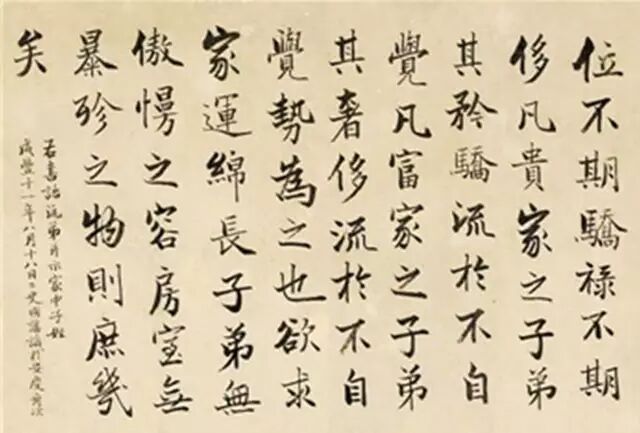 位不期驕禄不期
侈凡貴家之子弟
其矜驕流於不自
覺凡富家之子弟
其奢侈流於不自
覺勢為之也欲求
家運綿長子弟無
傲慢之容房室無
暴殄之物則庶幾
矣
右書詒沅弟并示家中子姪
咸豐十一年八月十八日兄國藩識於安慶舟次